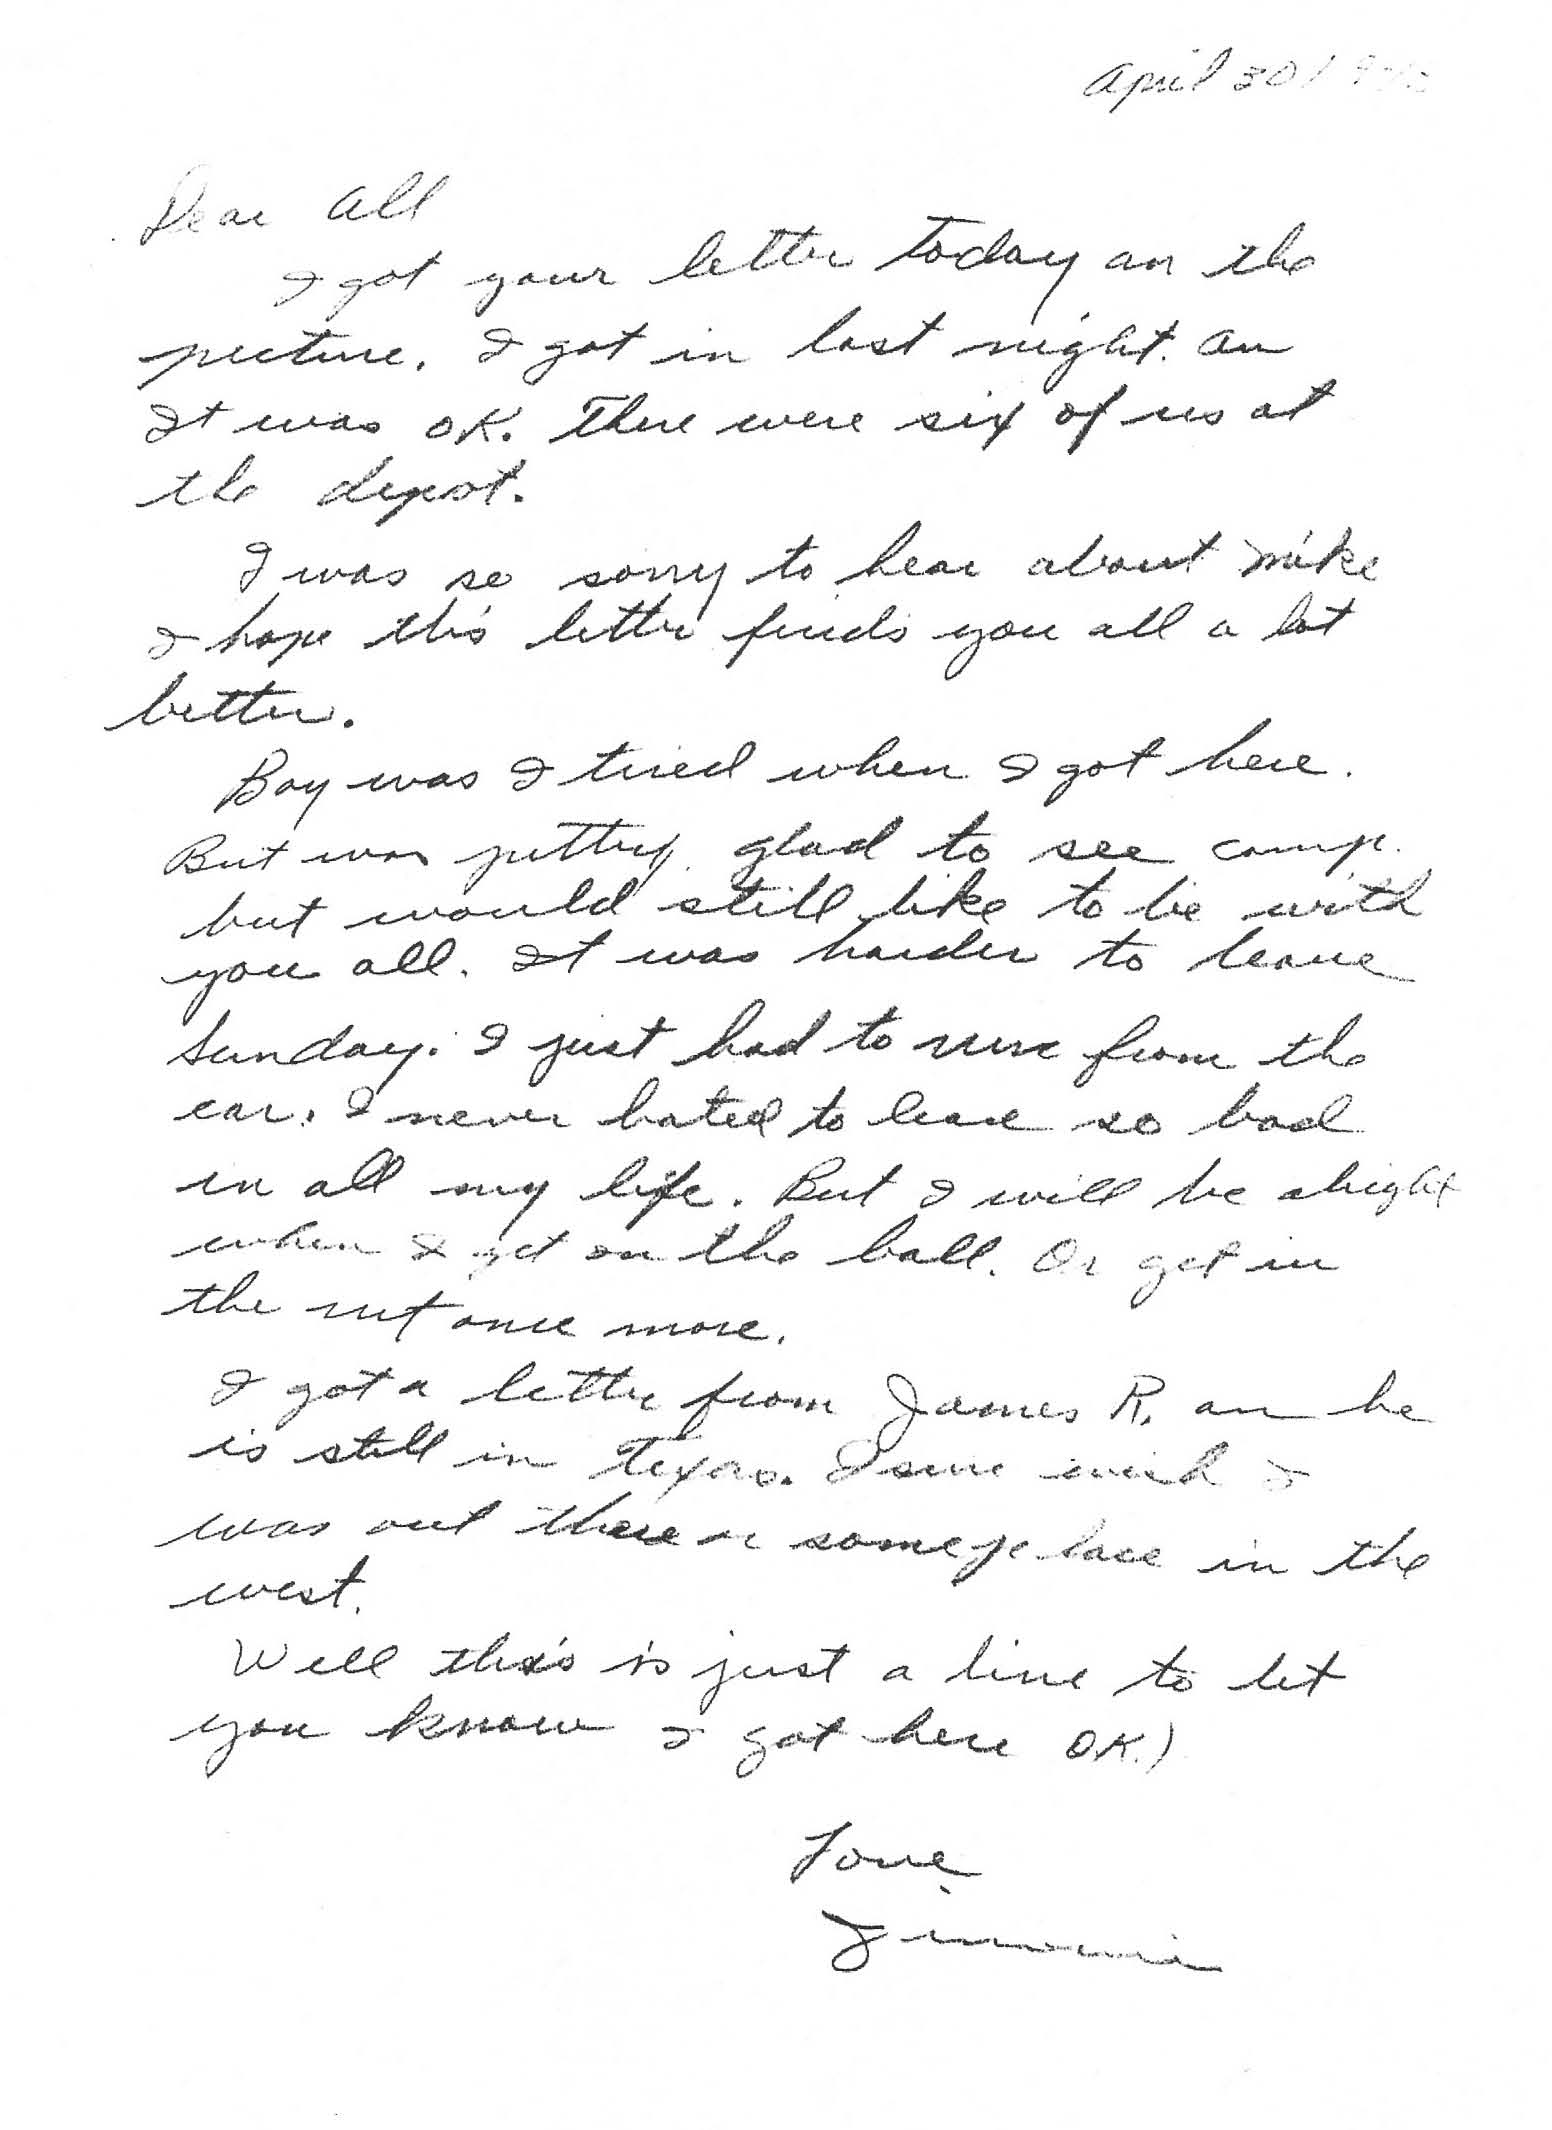 April 30 / 9
Dear all
I got your letter today an the
picture. I got in last night. an
It was OK. There were six of us at
the depot.
I was so sorry to hear about Mike
I hope this letter finds you all a lot
better.
Boy was I tired when I got here.
But was pretty glad to see camp.
but would still like to be with
you all. It was harder to leave
Sunday. I just had to run from the
car. I never hated to leave so bad
in all my life. But I will be alright
when I get on the ball. Or get in
the rut once more.
I got a letter from James R. an he
is still in Texas. I sure wish I
was out there or someplace in the
west.
Well this is just a line to let
you know I got here OK.)
Love
Jimmie